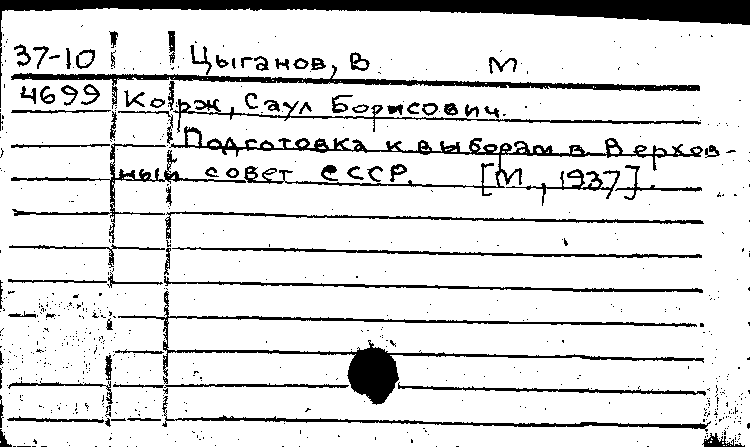 37-10 Цыганов, В М
4699 Корж, Саул Борисович.
Подготовка к выборам в Верхов-
ный совет СССР. [М., 1937].